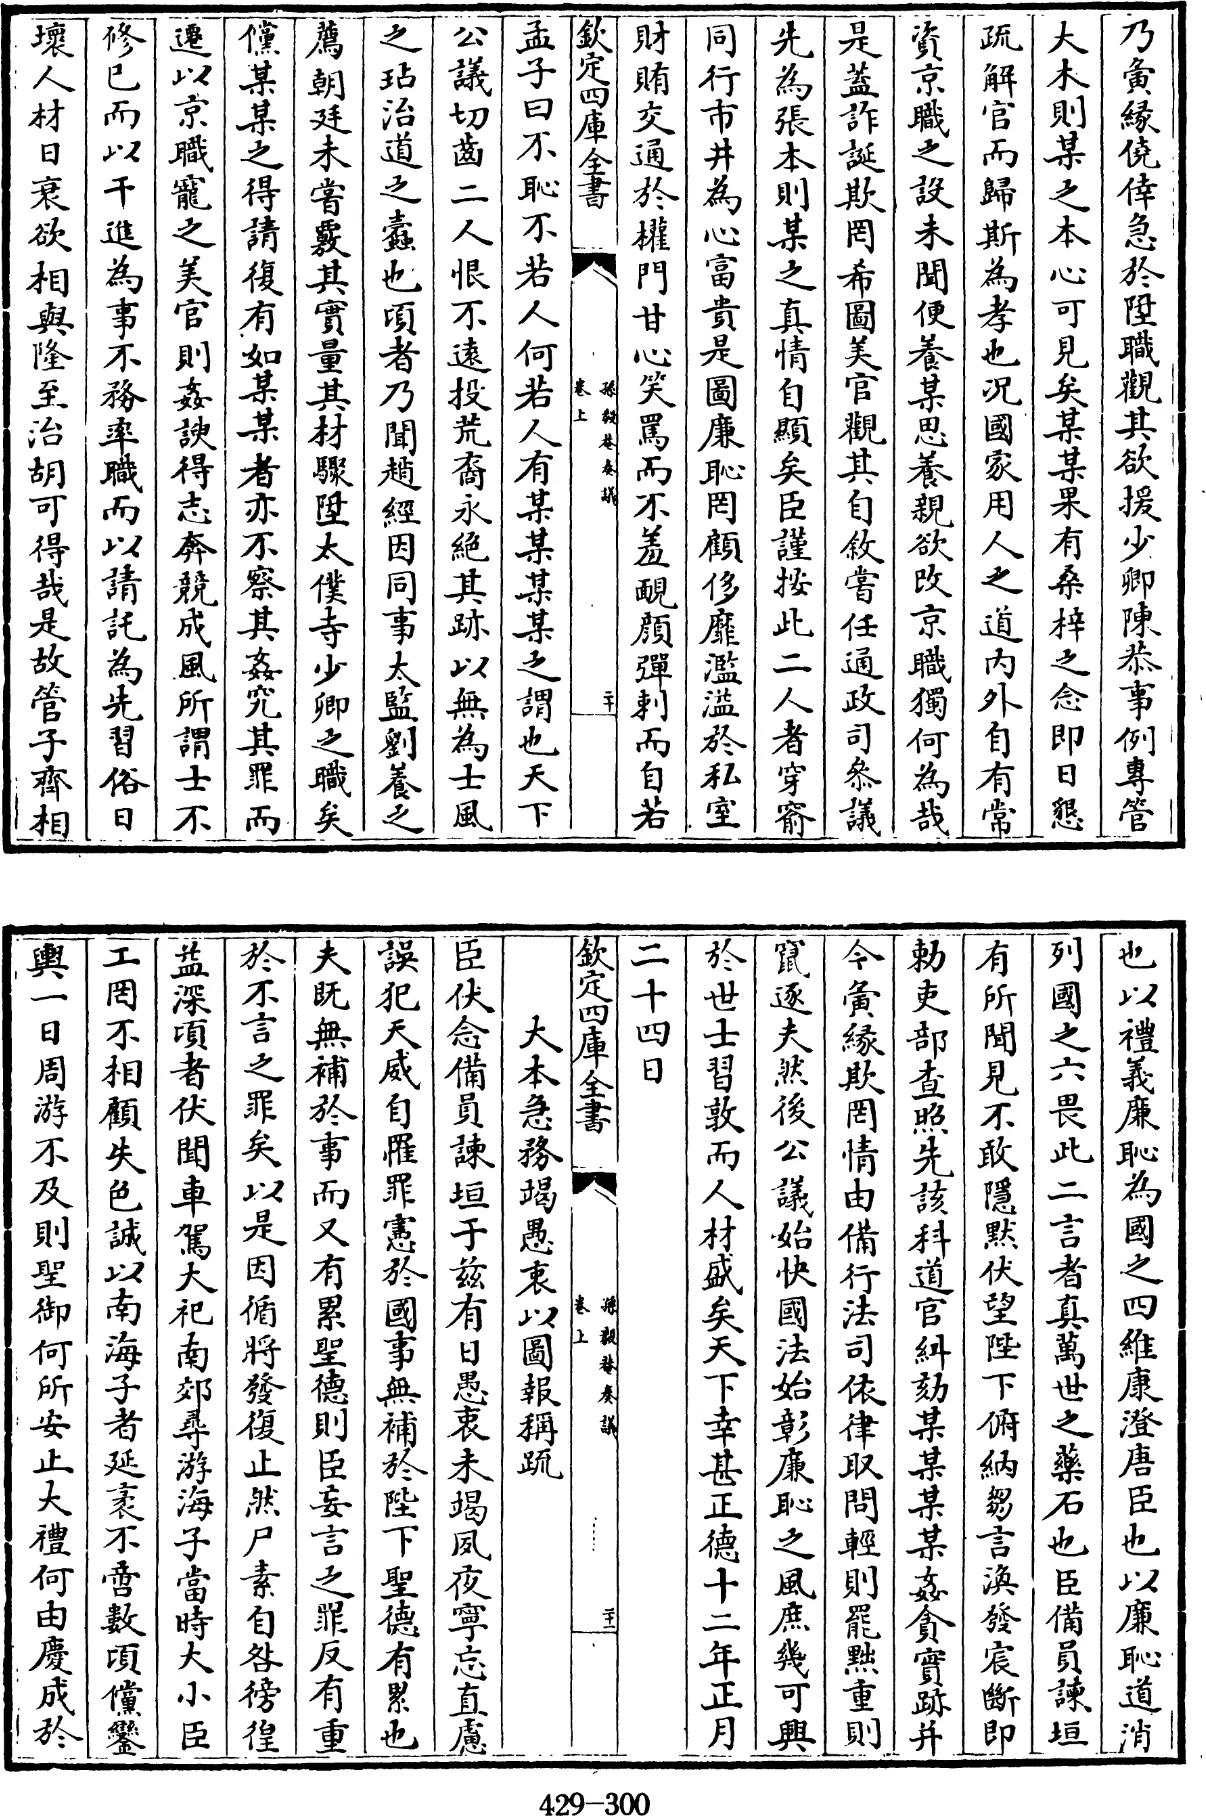 乃夤緣僥倖急於陞職觀其欲援少卿陳恭事例專管
大木則某之本心可見矣某某果有桑梓之念即日懇
疏解官而歸斯為孝也况國家用人之道内外自有常
資京職之設未聞便養某思養親欲改京職獨何為哉
是蓋詐誕欺罔希圖美官觀其自敘嘗任通政司叅議
先為張本則某之真情自顯矣臣謹按此二人者穿窬
同行市井為心富貴是圖廉恥罔顧侈靡濫溢於私室
財賄交通於權門甘心笑罵而不羞靦顔彈刺而自若
欽定四庫全書
孫毅菴奏議
卷上
二十
孟子曰不恥不若人何若人有某某某某之謂也天下
公議切齒二人恨不遠投荒裔永絶其跡以無為士風
之玷治道之蠹也頃者乃聞趙經因同事太監劉養之
薦朝廷未嘗覈其實量其材驟陞太僕寺少卿之職矣
儻某某之得請復有如某某者亦不察其姦究其罪而
遷以京職寵之美官則姦諛得志奔競成風所謂士不
修已而以干進為事不務率職而以請託為先習俗日
壞人材日衰欲相與隆至治胡可得哉是故管子齊相
也以禮義廉恥為國之四維康澄唐臣也以廉恥道消
列國之六畏此二言者真萬世之藥石也臣備員諫垣
有所聞見不敢隱默伏望陛下俯納芻言渙發宸斷即
勅吏部查照先該科道官糾劾某某某某姦貪實跡并
今夤緣欺罔情由備行法司依律取問輕則罷黜重則
竄逐夫然後公議始快國法始彰廉恥之風庶幾可興
於世士習敦而人材盛矣天下幸甚正德十二年正月
二十四日
欽定四庫全書
孫毅菴奏議
卷上
二十一
大本急務竭愚衷以圖報稱疏
臣伏念備員諫垣于兹有日愚衷未竭夙夜寧忘直慮
誤犯天威自罹罪憲於國事無補於陛下聖德有累也
夫既無補於事而又有累聖德則臣妄言之罪反有重
於不言之罪矣以是因循將發復止然尸素自咎徬徨
益深頃者伏聞車駕大祀南郊尋游海子當時大小臣
工罔不相顧失色誠以南海子者延袤不啻數頃儻鑾
輿一日周游不及則聖御何所安止大禮何由慶成於
429-300